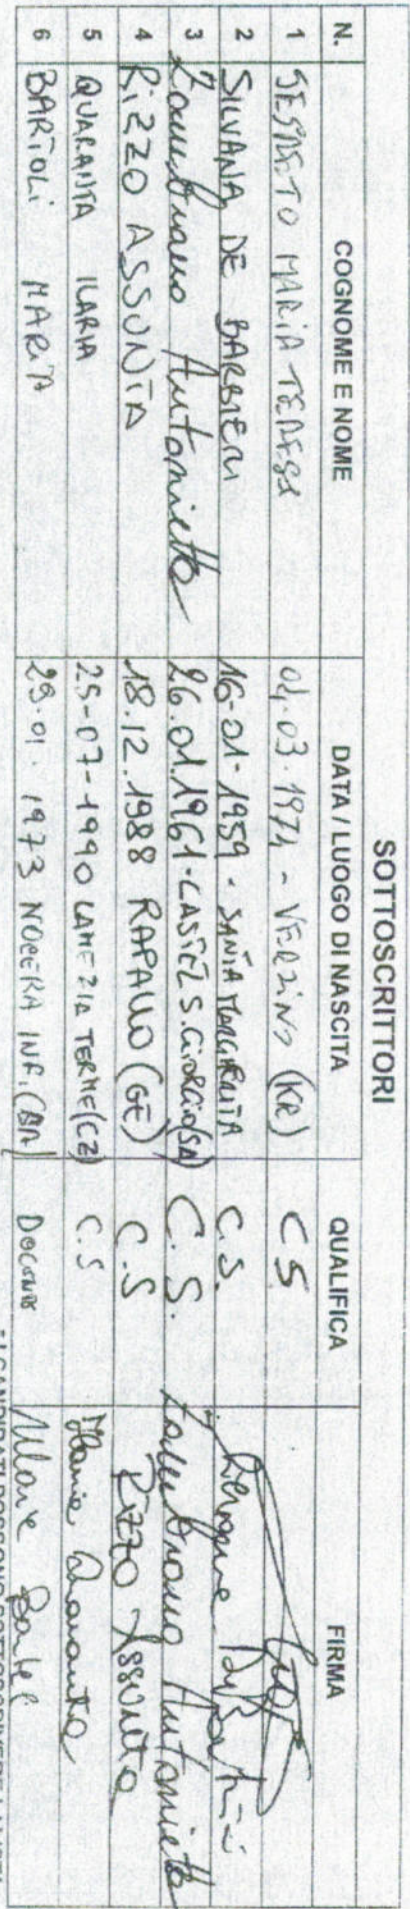 SOTTOSCRITTORI
N. COGNOME E NOME DATA / LUOGO DI NASCITA QUALIFICA FIRMA
1 MARIA TERESA 04.03.1974 - VERZINO (KR) CS
2 SILVANA DE BARBIERI 16-01-1959 - SANTA MARGHERITA C.S.
3 Antonietta 26.01.1961 - CASTEL S. GIORGIO (SA) C.S. Antonietta
4 RIZZO ASSUNTA 18.12.1988 RAPALLO (GE) C.S Rizzo Assunta
5 QUARANTA ILARIA 25-07-1990 LAMEZIA TERME (CZ) C.S Ilaria Quaranta
6 BARTOLI MARIA 29.01.1973 NOCERA INF. DOCENTE Maria